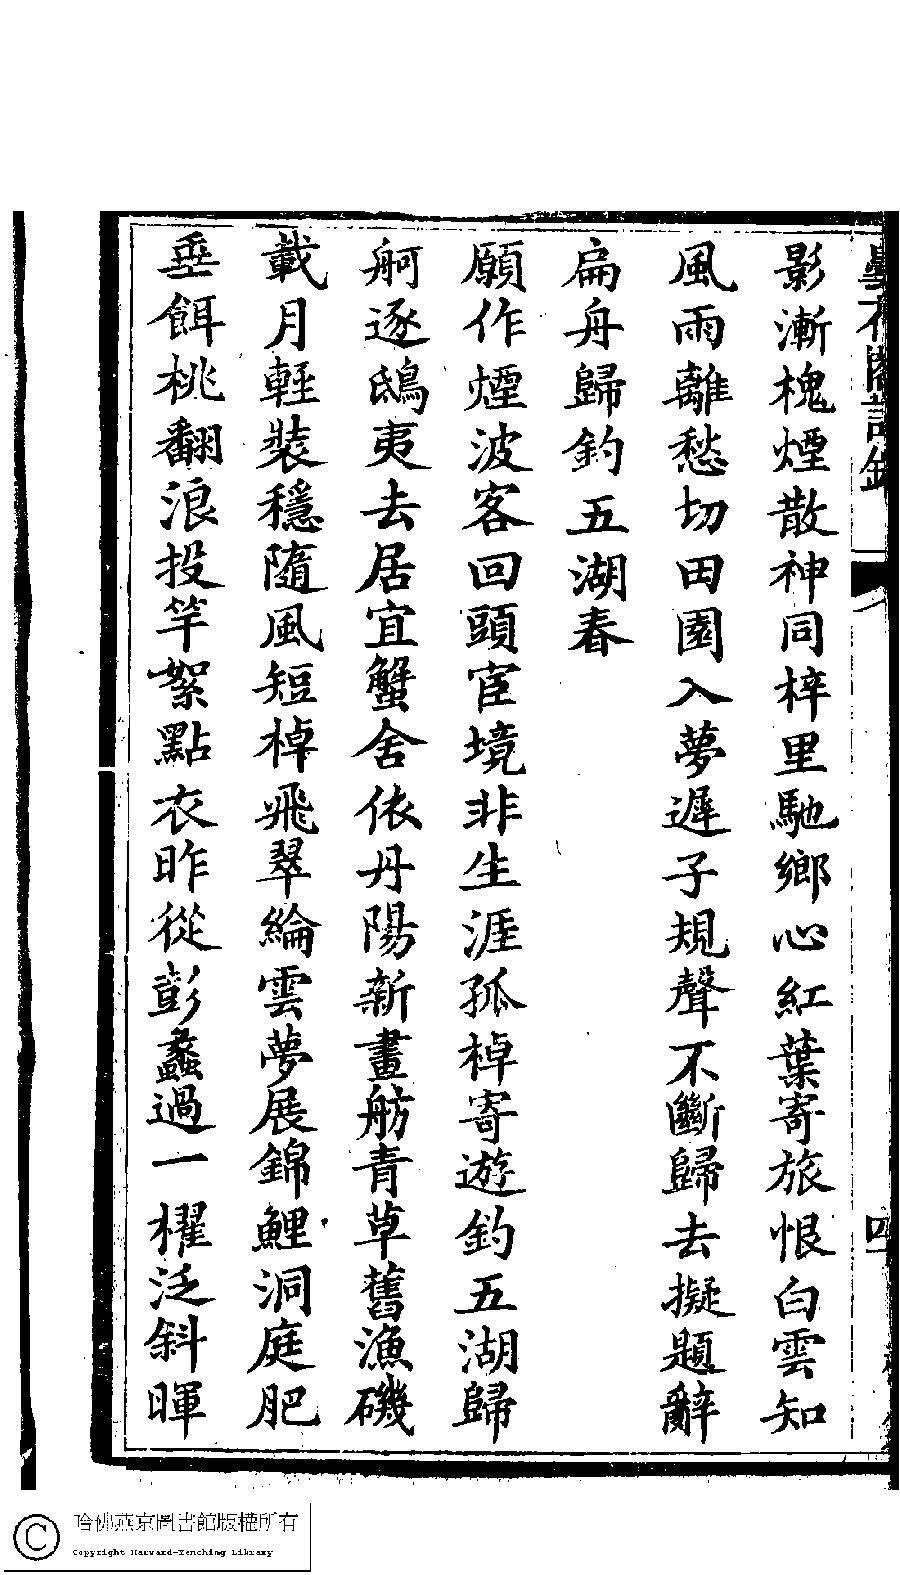 影漸槐煙散神同梓里馳鄉心紅葉寄旅恨白雲知
風雨離愁切田園入夢遲子規聲不斷歸去擬題辭
扁舟歸釣五湖春
願作煙波客回頭宦境非生涯孤棹寄遊釣五湖歸
舸逐鴟夷去居宜蟹舍依丹陽新畫舫青草舊漁磯
載月輕裝穩隨風短棹飛翠綸雲夢展錦鯉洞庭肥
垂餌桃翻浪投竿絮點衣昨從彭蠡過一櫂泛斜暉
哈佛燕京圖書館版權所有
Copyright Harvard-Yenching Library